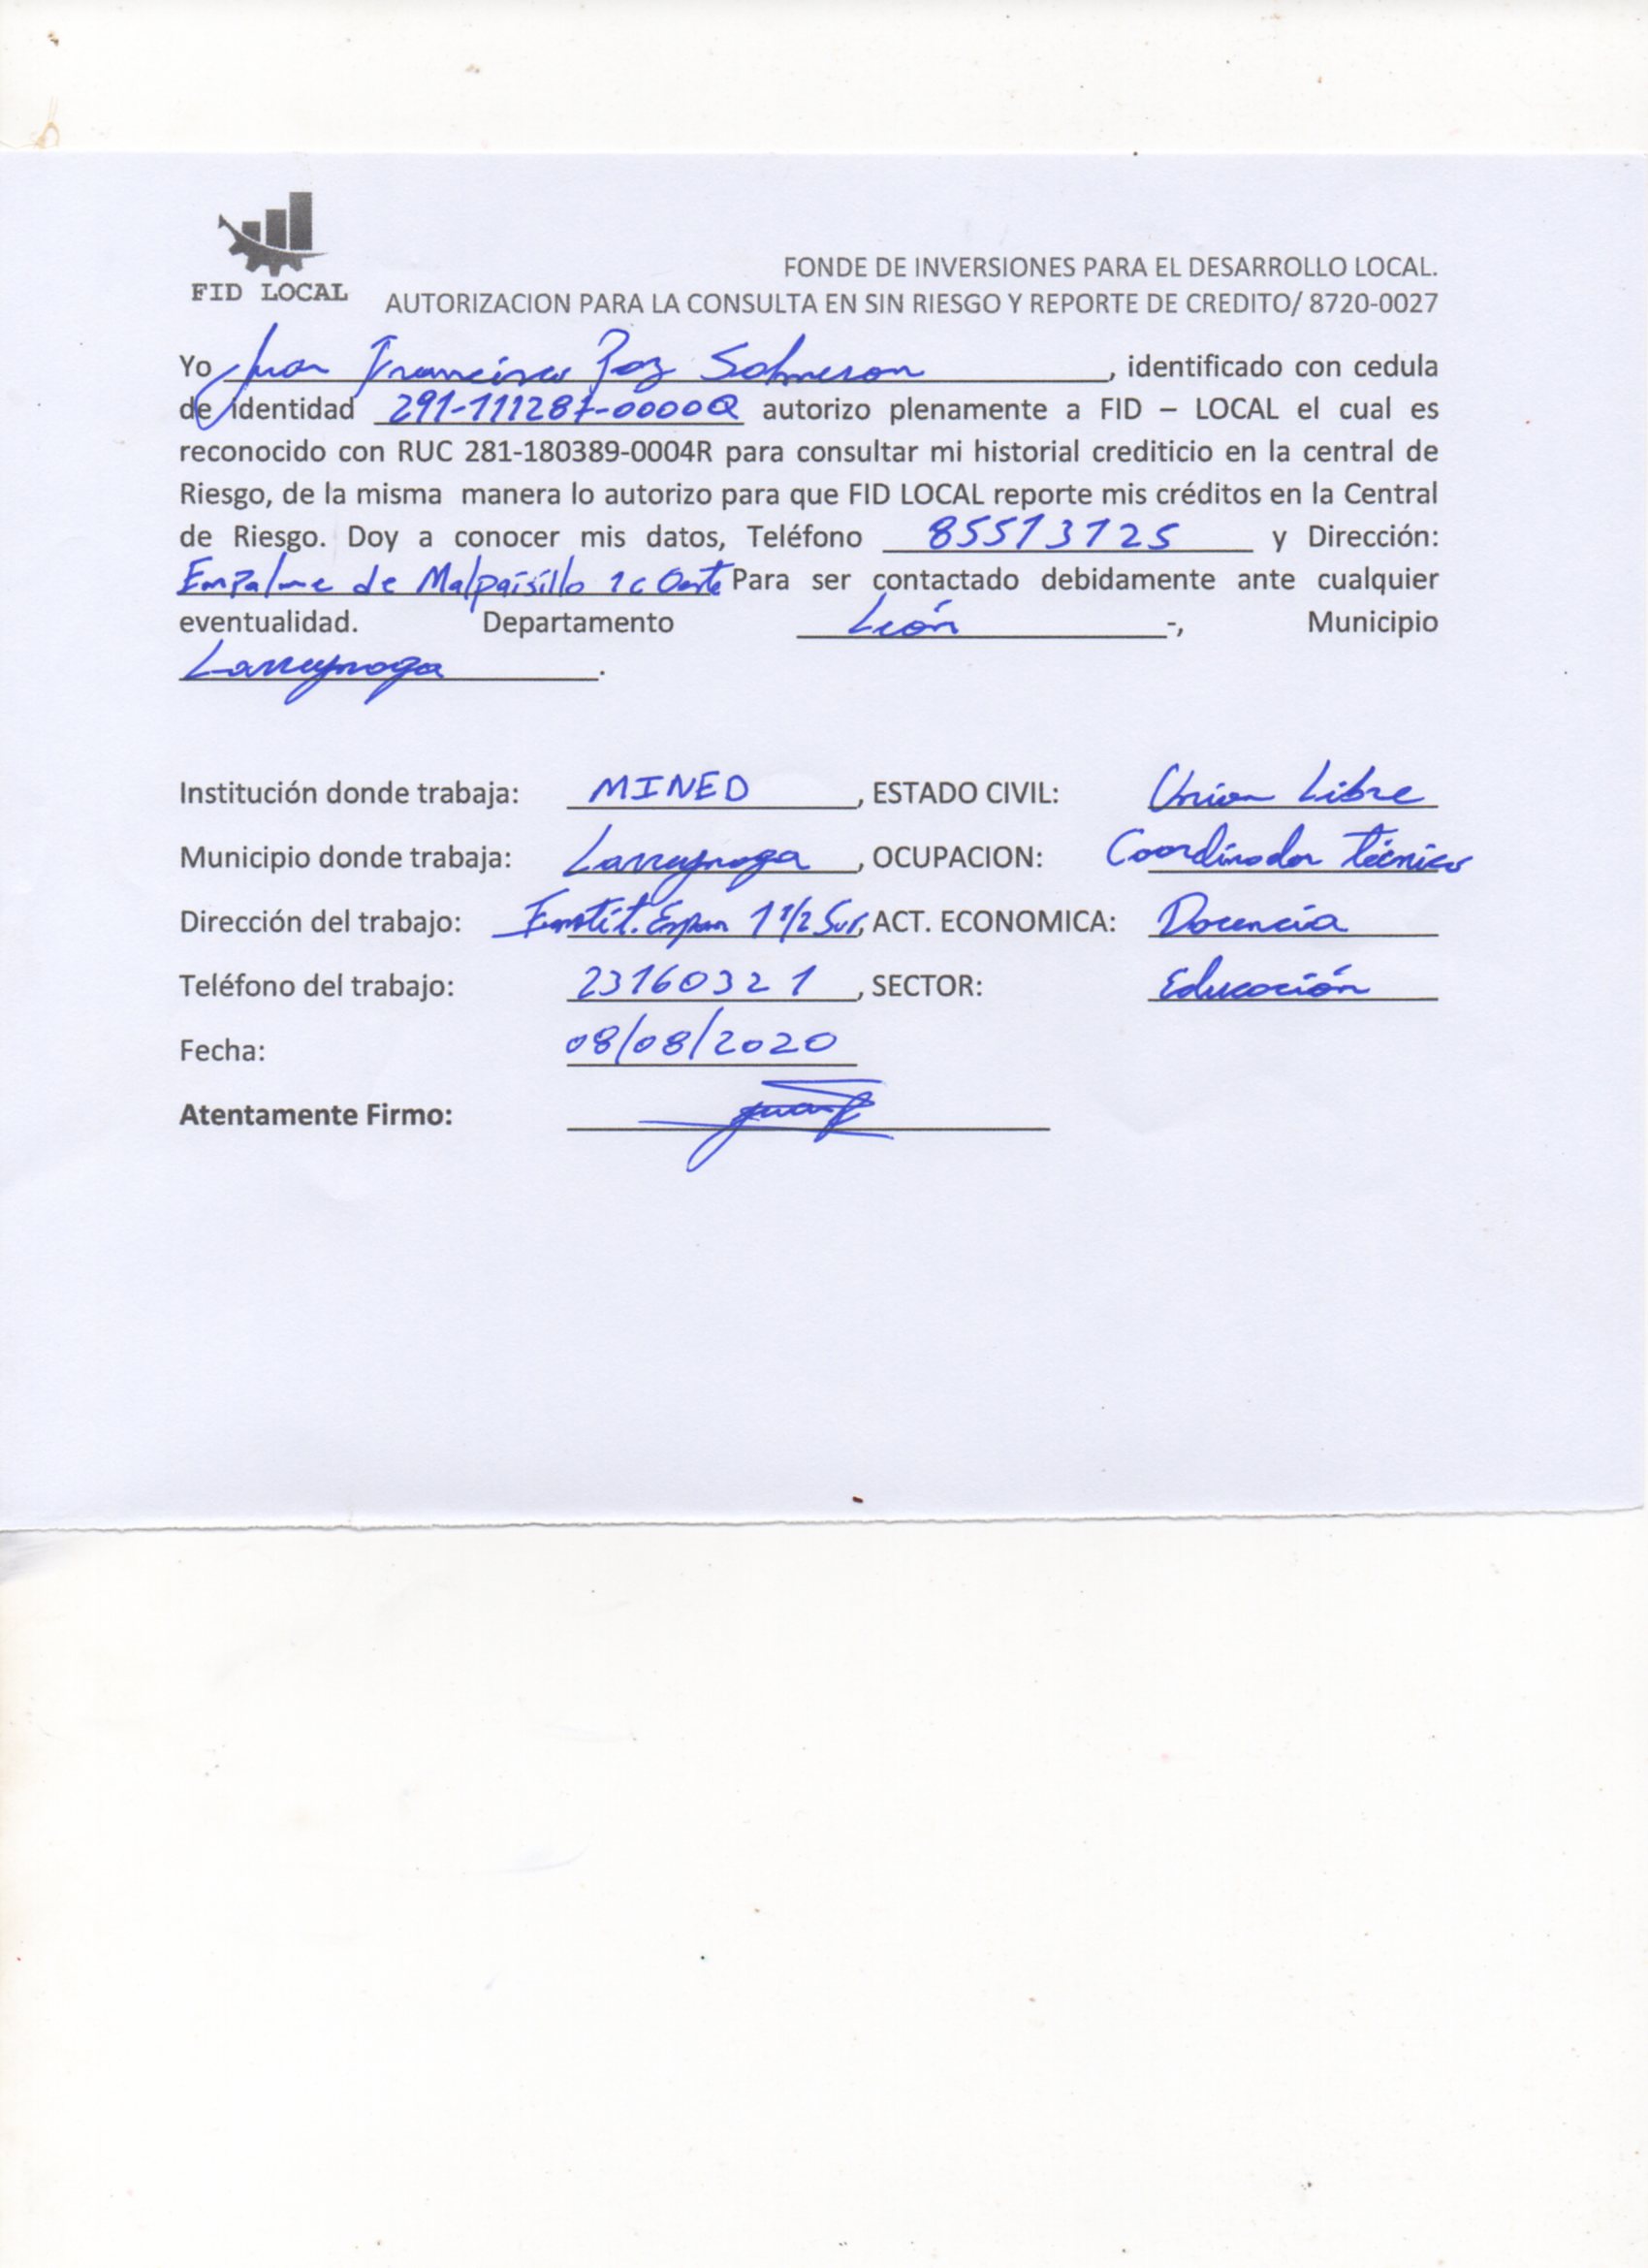 FID LOCAL
FONDE DE INVERSIONES PARA EL DESARROLLO LOCAL.
AUTORIZACION PARA LA CONSULTA EN SIN RIESGO Y REPORTE DE CREDITO/ 8720-0027
Yo Juan Francisco Paz Solmeron, identificado con cedula
de identidad 291-111287-0000Q autorizo plenamente a FID – LOCAL el cual es
reconocido con RUC 281-180389-0004R para consultar mi historial crediticio en la central de
Riesgo, de la misma manera lo autorizo para que FID LOCAL reporte mis créditos en la Central
de Riesgo. Doy a conocer mis datos, Teléfono 85513125 y Dirección:
Empalme de Malpaisillo 1c Oeste Para ser contactado debidamente ante cualquier
eventualidad. Departamento León -, Municipio
Larreynaga.
Institución donde trabaja: MINED, ESTADO CIVIL: Union Libre
Municipio donde trabaja: Larreynaga, OCUPACION: Coordinador Técnico
Dirección del trabajo: 1 1/2 Sur, ACT. ECONOMICA: Docencia
Teléfono del trabajo: 23160321, SECTOR: Educación
Fecha: 08/08/2020
Atentamente Firmo: